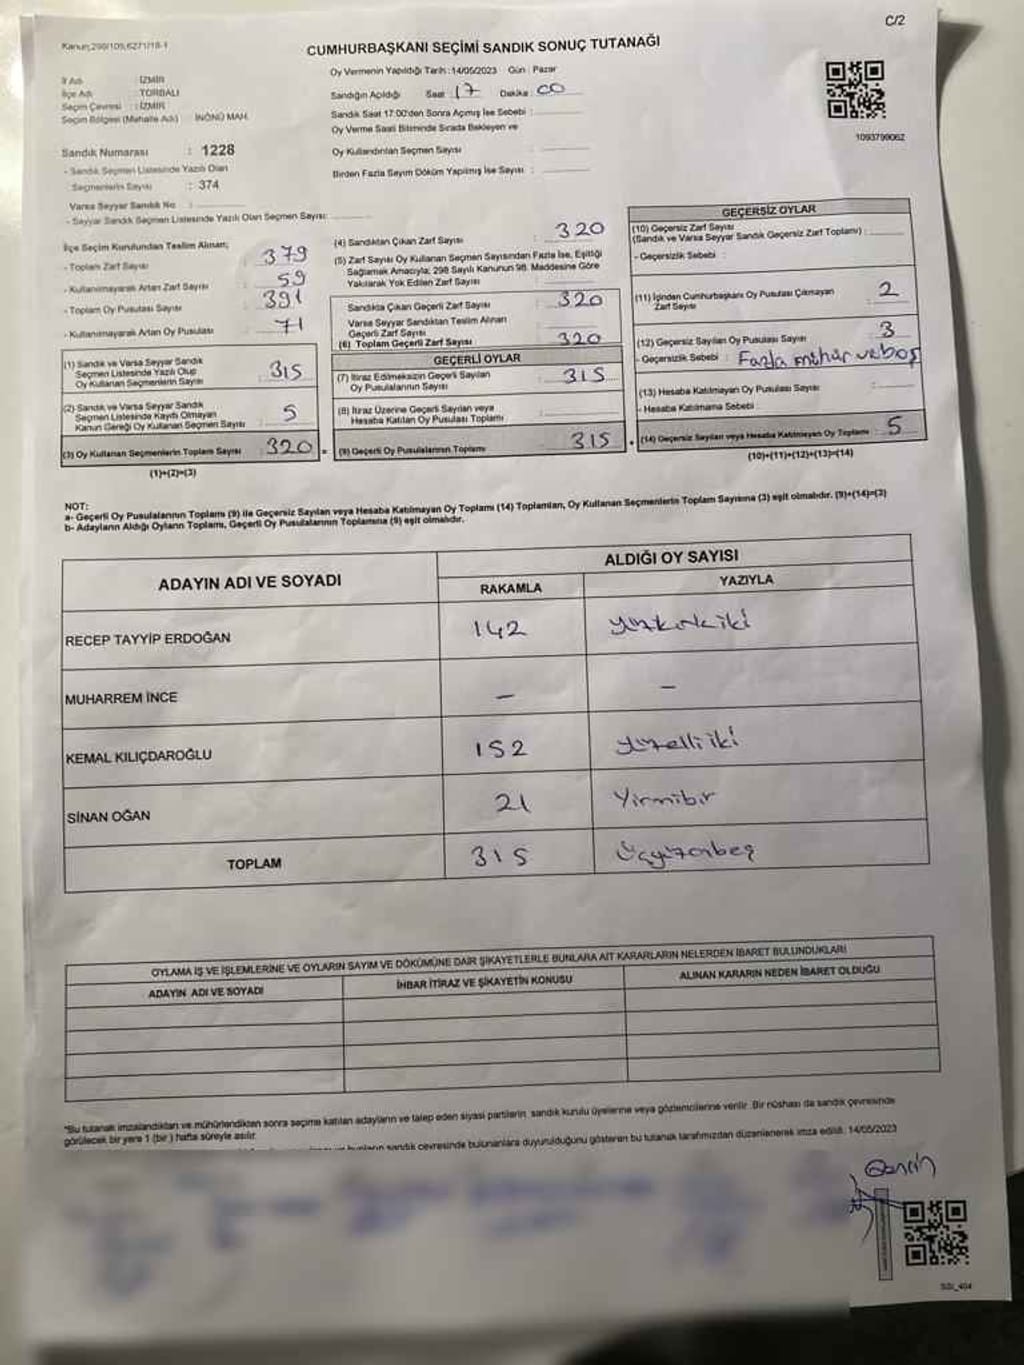 C/2
Kanun;298/109,6271/18-1
CUMHURBAŞKANI SEÇİMİ SANDIK SONUÇ TUTANAĞI
İl Adı : İZMİR
İlçe Adı : TORBALI
Seçim Çevresi : İZMİR
Seçim Bölgesi (Mahalle Adı) İNÖNÜ MAH.
Sandık Numarası : 1228
- Sandık Seçmen Listesinde Yazılı Olan
Seçmenlerin Sayısı : 374
Varsa Seyyar Sandık No :
- Seyyar Sandık Seçmen Listesinde Yazılı Olan Seçmen Sayısı:
Oy Vermenin Yapıldığı Tarih :14/05/2023 Gün : Pazar
Sandığın Açıldığı Saat : 17 Dakika : 00
Sandık Saat 17:00'den Sonra Açımış İse Sebebi :
Oy Verme Saati Bitiminde Sırada Bekleyen ve
Oy Kullandırılan Seçmen Sayısı :
Birden Fazla Sayım Döküm Yapılmış İse Sayısı :
1093799062
İlçe Seçim Kurulundan Teslim Alınan;
- Toplam Zarf Sayısı : 379
- Kullanılmayarak Artan Zarf Sayısı : 59
- Toplam Oy Pusulası Sayısı : 391
- Kullanılmayarak Artan Oy Pusulası : 71
(1) Sandık ve Varsa Seyyar Sandık
Seçmen Listesinde Yazılı Olup
Oy Kullanan Seçmenlerin Sayısı : 315
(2) Sandık ve Varsa Seyyar Sandık
Seçmen Listesinde Kayıtlı Olmayan
Kanun Gereği Oy Kullanan Seçmen Sayısı : 5
(3) Oy Kullanan Seçmenlerin Toplam Sayısı : 320 =
(1)+(2)=(3)
(4) Sandıktan Çıkan Zarf Sayısı : 320
(5) Zarf Sayısı Oy Kullanan Seçmen Sayısından Fazla İse, Eşitliği
Sağlamak Amacıyla; 298 Sayılı Kanunun 98. Maddesine Göre
Yakılarak Yok Edilen Zarf Sayısı :
Sandıkta Çıkan Geçerli Zarf Sayısı : 320
Varsa Seyyar Sandıktan Teslim Alınan
Geçerli Zarf Sayısı :
(6) Toplam Geçerli Zarf Sayısı : 320
GEÇERLİ OYLAR
(7) İtiraz Edilmeksizin Geçerli Sayılan
Oy Pusulalarının Sayısı : 315
(8) İtiraz Üzerine Geçerli Sayılan veya
Hesaba Katılan Oy Pusulası Toplamı :
(9) Geçerli Oy Pusulalarının Toplamı : 315 +
GEÇERSİZ OYLAR
(10) Geçersiz Zarf Sayısı
(Sandık ve Varsa Seyyar Sandık Geçersiz Zarf Toplamı) :
- Geçersizlik Sebebi :
(11) İçinden Cumhurbaşkanı Oy Pusulası Çıkmayan
Zarf Sayısı : 2
(12) Geçersiz Sayılan Oy Pusulası Sayısı : 3
- Geçersizlik Sebebi : Fazla mühür ve boş
(13) Hesaba Katılmayan Oy Pusulası Sayısı :
- Hesaba Katılmama Sebebi :
(14) Geçersiz Sayılan veya Hesaba Katılmayan Oy Toplamı : 5
(10)+(11)+(12)+(13)=(14)
NOT:
a- Geçerli Oy Pusulalarının Toplamı (9) ile Geçersiz Sayılan veya Hesaba Katılmayan Oy Toplamı (14) Toplamları, Oy Kullanan Seçmenlerin Toplam Sayısına (3) eşit olmalıdır. (9)+(14)=(3)
b- Adayların Aldığı Oyların Toplamı, Geçerli Oy Pusulalarının Toplamına (9) eşit olmalıdır.
ADAYIN ADI VE SOYADI
ALDIĞI OY SAYISI
RAKAMLA YAZIYLA
RECEP TAYYİP ERDOĞAN 142 yüzkırkiki
MUHARREM İNCE - -
KEMAL KILIÇDAROĞLU 152 yüzelliiki
SİNAN OĞAN 21 Yirmibir
TOPLAM 315 üçyüzonbeş
OYLAMA İŞ VE İŞLEMLERİNE VE OYLARIN SAYIM VE DÖKÜMÜNE DAİR ŞİKAYETLERLE BUNLARA AİT KARARLARIN NELERDEN İBARET BULUNDUKLARI
ADAYIN ADI VE SOYADI İHBAR İTİRAZ VE ŞİKAYETİN KONUSU ALINAN KARARIN NEDEN İBARET OLDUĞU
"Bu tutanak imzalandıktan ve mühürlendikten sonra seçime katılan adayların ve talep eden siyasi partilerin, sandık kurulu üyelerine veya gözlemcilerine verilir. Bir nüshası da sandık çevresinde
görülecek bir yere 1 (bir ) hafta süreyle asılır.
bunların sandık çevresinde bulunanlara duyurulduğunu gösteren bu tutanak tarafımızdan düzenlenerek imza edildi. 14/05/2023